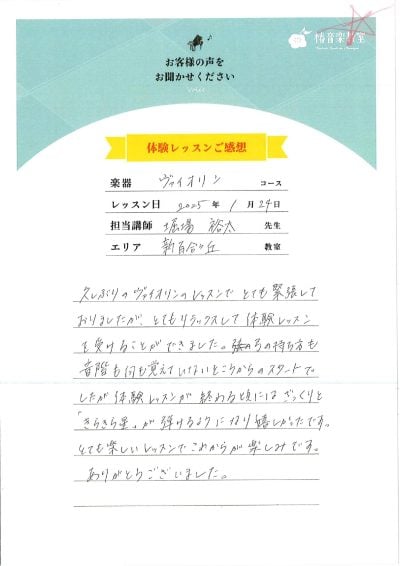 椿音楽教室
お客様の声を
お聞かせください
体験レッスンご感想
楽器 ヴァイオリン コース
レッスン日 2025年 1月24日
担当講師 堀場 裕太 先生
エリア 新百合ヶ丘 教室
久しぶりのヴァイオリンのレッスンで とても緊張して
おりましたが、とてもリラックスして体験レッスン
を受けることができました。弓の持ち方も
音階も何も覚えていないところからのスタートで
したが 体験レッスンが 終わる頃には ざっくりと
「きらきら星」が 弾けるようになり嬉しかったです。
とても楽しいレッスンで これからが 楽しみです。
ありがとうございました。